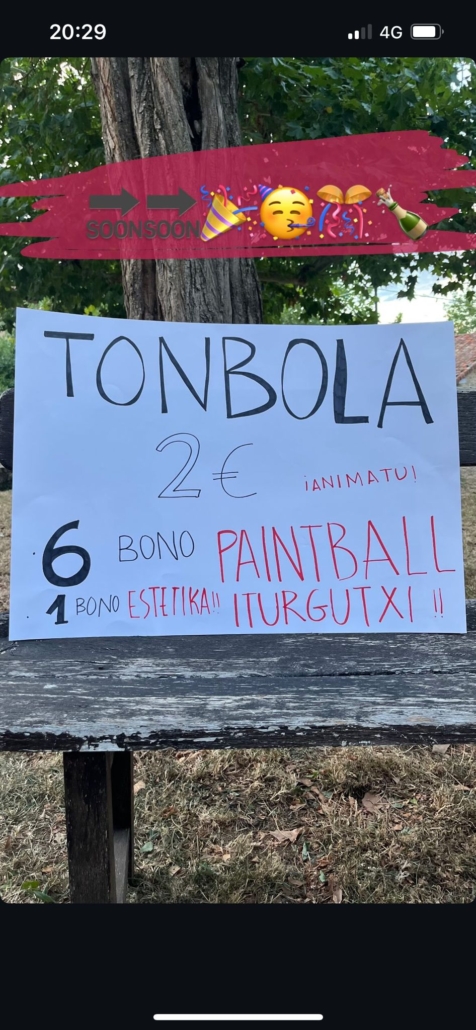 20:29 4G
SOON SOON
TONBOLA
2€ ¡ANIMATU!
6 BONO PAINTBALL
1 BONO ESTETIKA!! ITURGUTXI !!